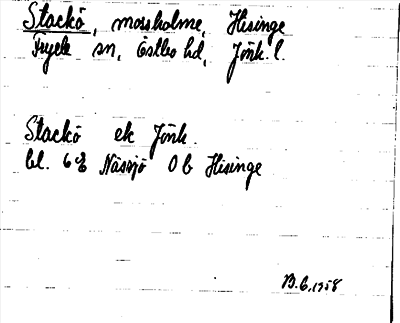 Stackö, mossholme, Hisinge
Tryels sn, Östbo hd, Jönk. l.
Stackö ek Jönk.
bl. 6 Nässjö Ob Hisinge
B.G. 1958